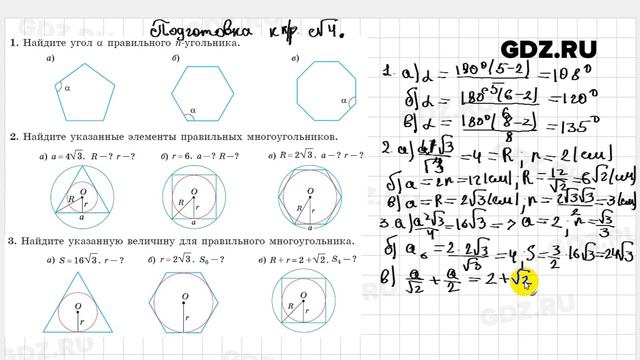 Подготовка к кр №4.
GDZ.RU
1. Найдите угол α правильного n-угольника.
а) б) в)
α α α
2. Найдите указанные элементы правильных многоугольников.
а) a=4√3. R—? r—? б) r=6. a—? R—? в) R=2√3. a—? r—?
O R r a
O R r a
O R r a
3. Найдите указанную величину для правильного многоугольника.
а) S=16√3. r—? б) r=2√3. S₆—? в) R+r=2+√2. S₄—?
O r
O r
O R r
1. а) α = 180°(5-2)/5 = 108°
б) α = 180°(6-2)/6 = 120°
в) α = 180°(8-2)/8 = 135°
2. а) = 4 = R, r = 2 (см)
б) a = 2r = 12 (см), R = 12/√2 = 6√2 (см)
в) a = R = 2√3 (см), r = 2√3√3/2 = 3 (см)
3. а) a²√3/4 = 16√3 => a = 2, r = √3/3
б) a₆ = 2·2√3/√3 = 4, S = 3/2 · 16√3 = 24√3
в) a/√2 + a/2 = 2 + √2